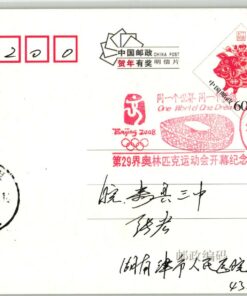 2 0 0
中国邮政
CHINA POST
贺年有奖
明信片
中国邮政
60
同一个世界 同一个
One World One Dream
Beijing 2008
第29界奥林匹克运动会开幕纪念
皖寿县三中
邮政编码
湖南津市人民医院
43